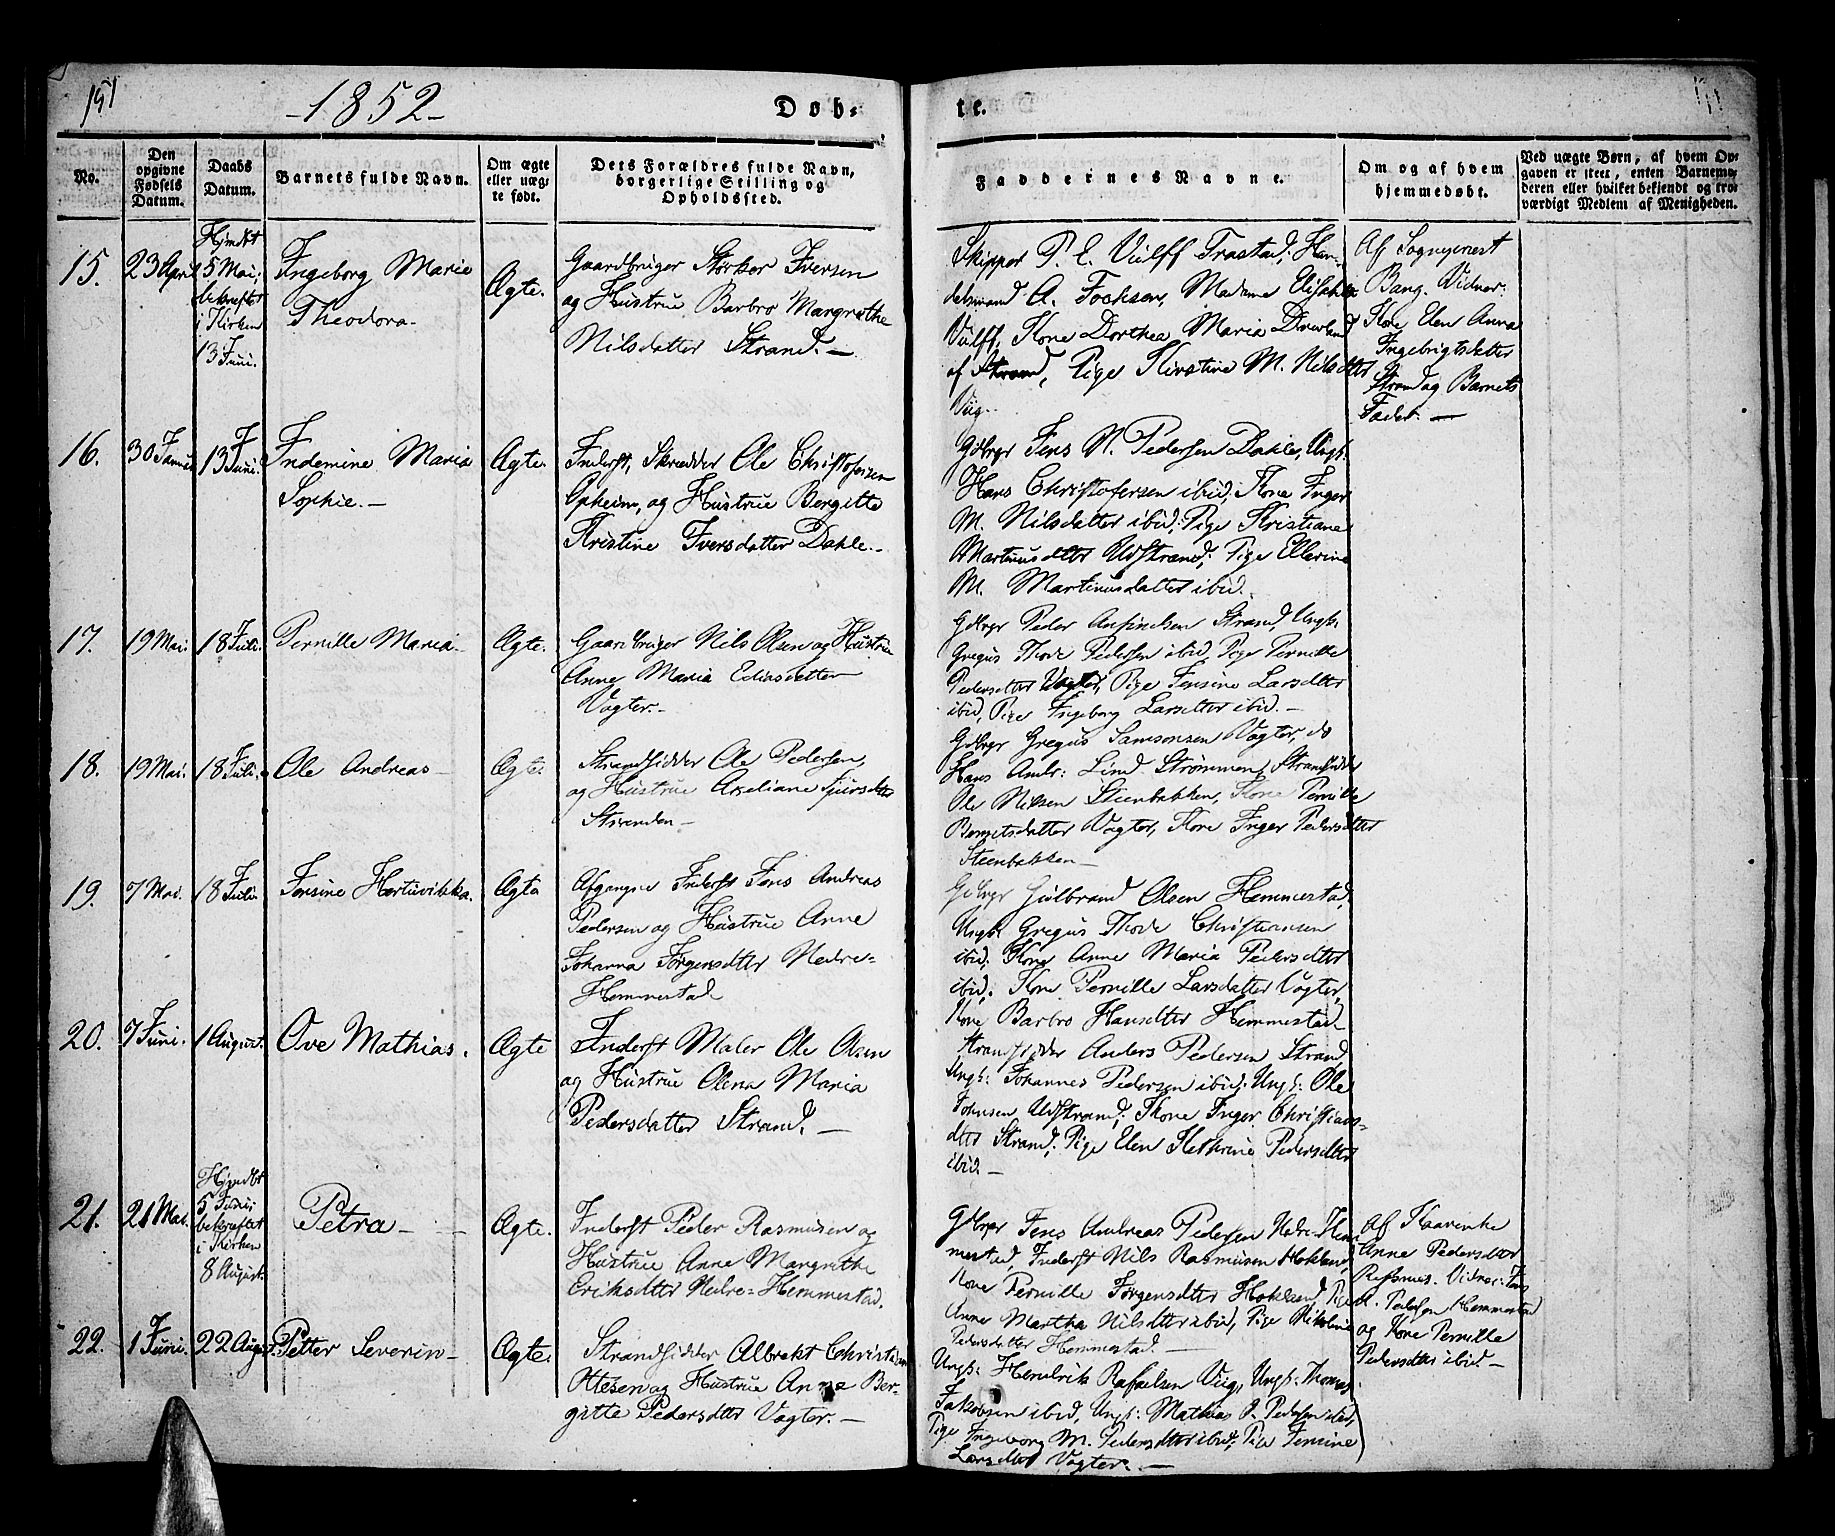 151
-1852-
Døb-
te.
No.
Den opgivne Fødsels Datum.
Daabs Datum.
Barnets fulde Navn.
Om ægte eller uægte født.
Dets Forældres fulde Navn, borgerlige Stilling og Opholdssted.
Faddernes Navne.
Om og af hvem hjemmedøbt.
Ved uægte Børn, af hvem Opgaven er skeet, enten Barnemoderen eller hvilket bekjendt og troværdigt Medlem af Menigheden.
15.
23 April
Hjmdbt
5 Mai;
bekræftet
i Kirken
13 Juni.
Ingeborg Marie
Theodora.
Ægte.
Gaardbruger Størker Iversen
og Hustrue Barbro Margrethe
Nilsdatter Strand. —
Skipper P. E. Vulff Trastad, Han-
delsmand A. Fochsen, Madame Elisabeth
Vulff, Kone Dorthea Maria
af Strand, Pige Kirstine M. Nilsdtter
Viig.
Af Sogneprest
Bang. Vidner:
Kone Elen Anna
Ingebrigtsdatter
Strand og Barnets
Fader. —
16.
30 Januar
13 Juni.
Indemine Maria
Sophie. —
Ægte.
Inderst, Skrædder Ole Christofersen
Opheim, og Hustrue Bergitte
Kristine Iversdatter Dahle. -
Gdbrgr Jens N. Pedersen Dahle, Ungk:
Hans Christofersen ibid; Kone Inger
M. Nilsdatter ibid; Pige Kristiane
Martinusdtter Udstrand; Pige Ellerine
M. Martinusdatter ibid.
17.
19 Mai.
18 Juli.
Pernille Maria.
Ægte.
Gaardbruger Nils Olsen og Hustrue
Anne Maria Ediasdatter
Vogter. -
Gdbrgr Peder Anfindsen Strand, Ungk.
Gregus Thode Pedersen ibid, Pige Pernille
Pedersdtter Vogter, Pige Jensine Larsdtter
ibid, Pige Ingeborg Larsdtter ibid. —
18.
19 Mai.
18 Juli.
Ole Andreas
Ægte.
Strandsidder Ole Pedersen,
og Hustrue Axeliane Sjursdtter
Stranden —
Gdbrgr Gregus Samsonsen Vogter, do
Hans Andr: Lind Strømmen, Strandsidder
Ole Nilsen Steenbakken, Kone Pernille
Berntsdatter Vogter, Kone Inger Pedersdtter
Steenbakken —
19.
7 Mai.
18 Juli.
Jensine Hartuvikka.
Ægte
Afgangne Inderst Jens Andreas
Pedersen og Hustrue Anne
Johanna Jørgensdtter Nedre-
Hemmestad
Gdbrgr Gulbrand Olsen Hemmestad,
Ungk. Gregus Thode Christiansen
ibid, Kone Anne Maria Pedersdtter
ibid, Kone Pernille Larsdatter Vogter,
Kone Barbro Hansdtter Hemmestad
20.
7 Juni.
1 August.
Ove Mathias.
Ægte
Inderst Maler Ole Olsen
og Hustrue Olena Maria
Pedersdatter Strand. —
Strandsidder Anders Pedersen Strand
Ungk: Johannes Pedersen ibid; Ungk: Ole
Johnsen Udstrand; Kone Inger Christians-
dtter Strand; Pige Elen Kathrine Pedersdtter
ibid. —
21.
21 Mai.
Hjmdbt
5 Juni
bekræftet
i Kirken
8 August.
Petra —
Ægte.
Inderst Peder Rasmusen og
Hustrue Anne Margrethe
Eriksdtter Nedre-Hemmestad.
Gdbrgr Jens Andreas Pedersen Nedre-Hem-
mestad, Inderst Nils Rasmusen Hokland,
Kone Pernille Jørgensdtter Hokland, Pige
Anne Martha Nilsdtter ibid, Pige Nikoline
Pedersdatter Hemmestad. —
Af Kaarenke
Anne Pedersdtter
Refsnes. Vidner: Jens
A. Pedersen Hemmestad
og Kone Pernille
Pedersdtter ibid —
22.
1 Juni.
22 Augst.
Petter Severin —
Ægte.
Strandsidder Albrekt Christian
Ottesen og Hustrue Anne Ber-
gitte Pedersdtter Vogter. —
Ungk: Hendrik Rafaelsen Viig, Ungk: Thomas
Jakobsen ibid, Ungk: Mathias P. Pedersen ibid,
Pige Ingeborg M. Pedersdtter ibid, Pige Jensine
Larsdtter Vogter. —